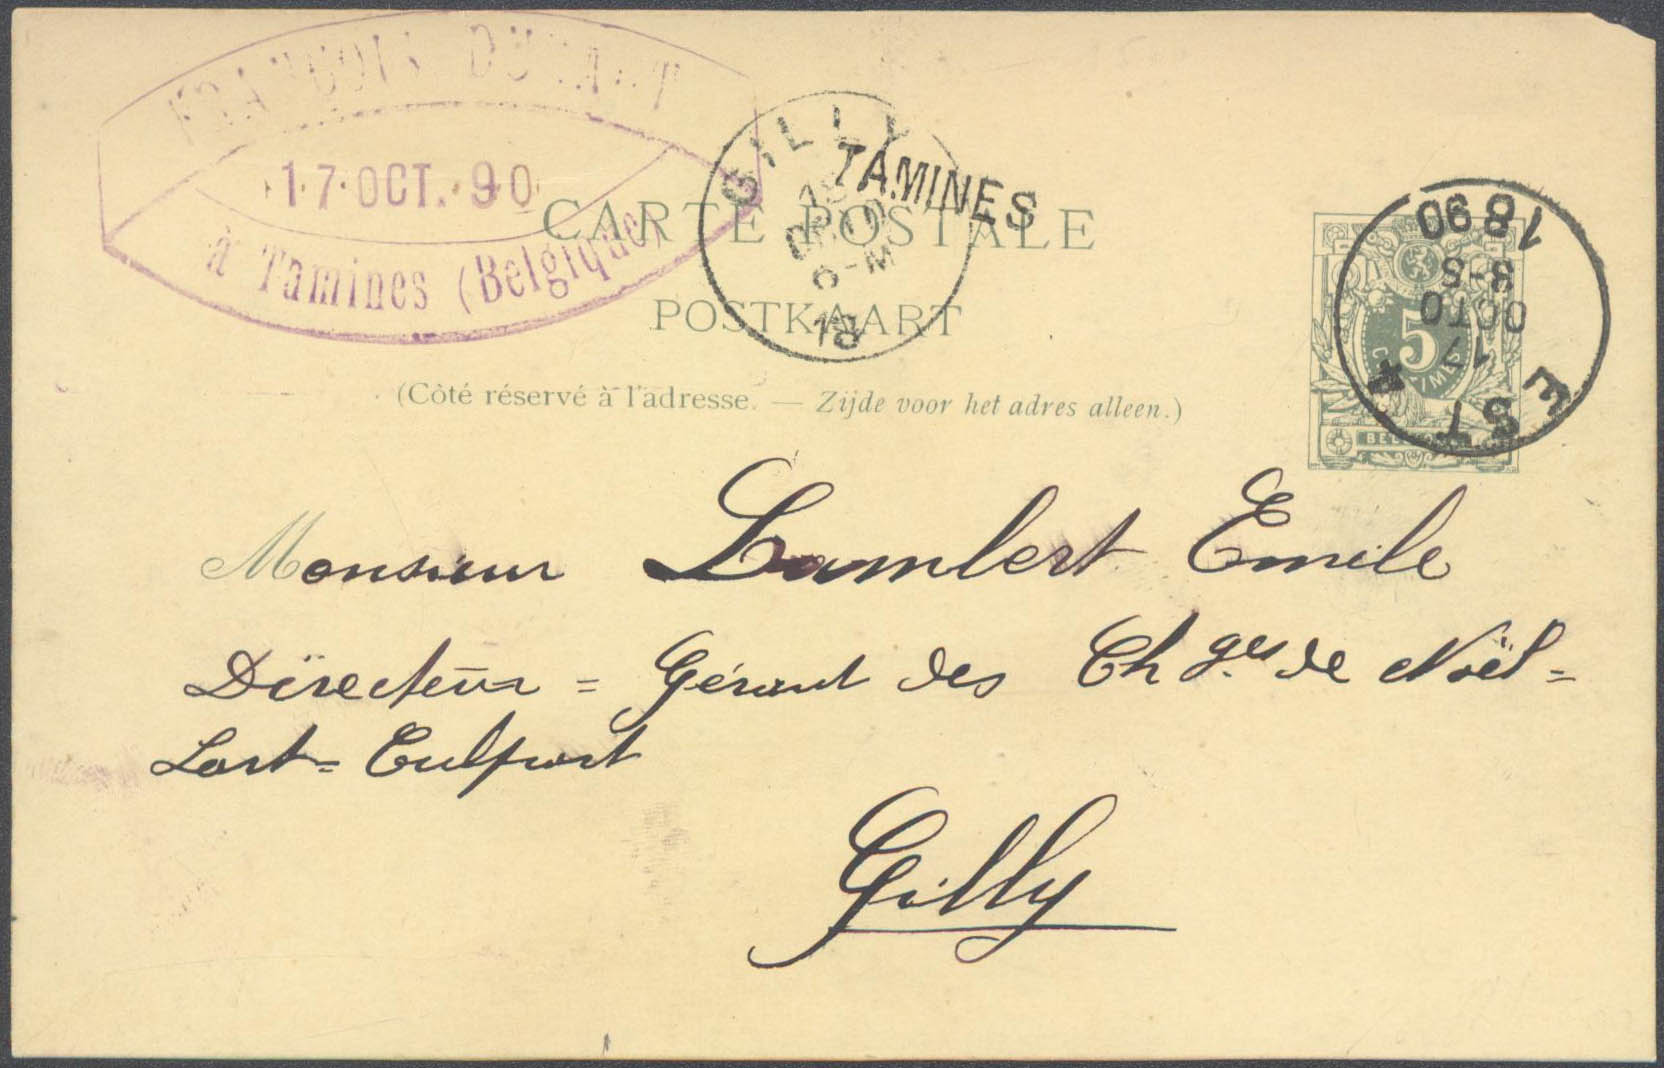 17 OCT. 90
à Tamines (Belgique)
GILLY
TAMINES
CARTE POSTALE
POSTKAART
(Côté réservé à l'adresse. — Zijde voor het adres alleen.)
5
EST
17
OCTO
8-5
1890
Monsieur Lambert Emile
Directeur = Gérant des Chges de Noël =
Sart = Culpart
Gilly